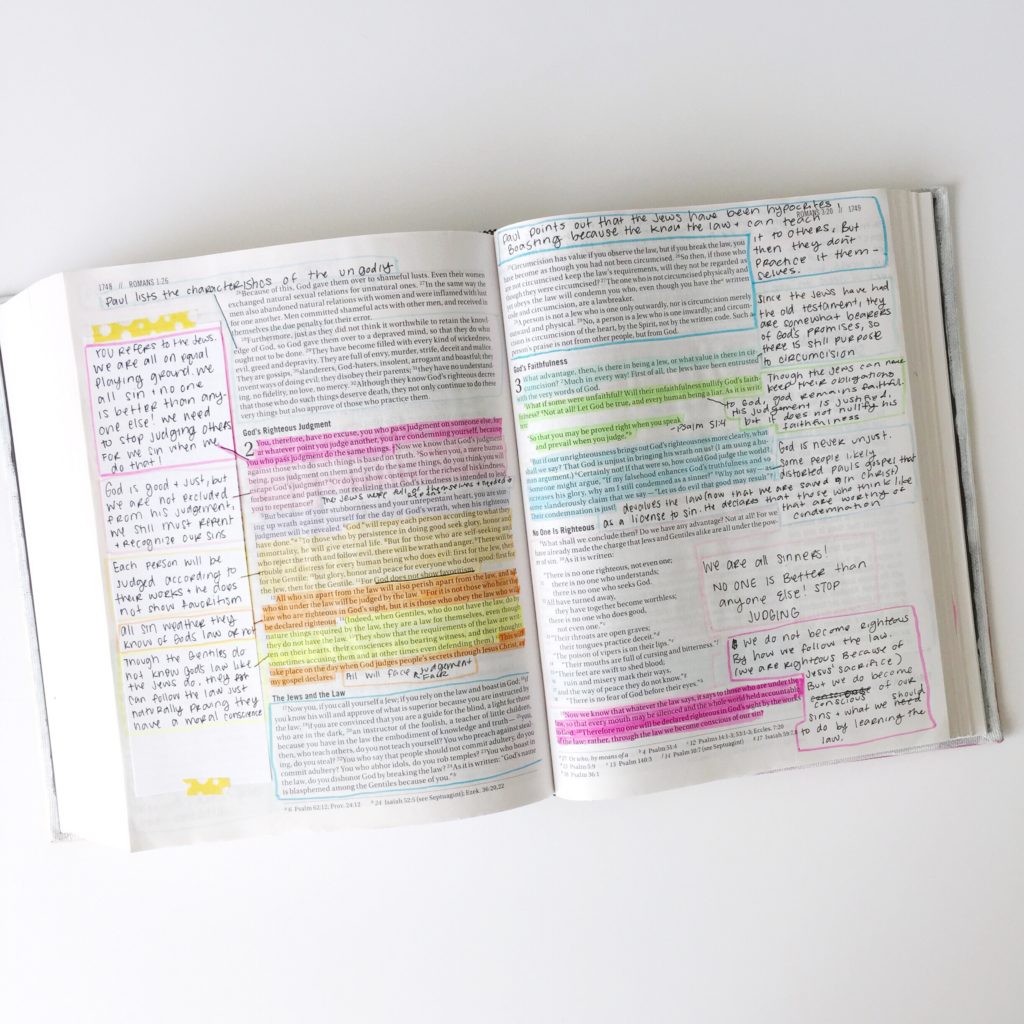 1748 // ROMANS 1:26
Paul lists the characteristics of the ungodly.
²⁶Because of this, God gave them over to shameful lusts. Even their women
exchanged natural sexual relations for unnatural ones. ²⁷In the same way the
men also abandoned natural relations with women and were inflamed with lust
for one another. Men committed shameful acts with other men, and received in
themselves the due penalty for their error.
²⁸Furthermore, just as they did not think it worthwhile to retain the knowl
edge of God, so God gave them over to a depraved mind, so that they do what
ought not to be done. ²⁹They have become filled with every kind of wickedness,
evil, greed and depravity. They are full of envy, murder, strife, deceit and malice.
They are gossips, ³⁰slanderers, God-haters, insolent, arrogant and boastful; they
invent ways of doing evil; they disobey their parents; ³¹they have no understand
ing, no fidelity, no love, no mercy. ³²Although they know God's righteous decree
that those who do such things deserve death, they not only continue to do these
very things but also approve of those who practice them.
YOU REFERS to the JEWS.
We are all on equal
Playing ground. We
all sin + no one
is better than any-
one else! We need
to stop judging others
For we sin when we
do that!
God is good + Just, but
we are not excluded
from his judgement,
we still must repent
+ recognize our sins
Each person will be
Judged according to
their works + he does
not show favoritism
all sin weather they
know of Gods law or not
Though the Gentiles do
not know Gods law like
the Jews do, they
can follow the law just
naturally proving they
have a moral conscience
God's Righteous Judgment
2 You, therefore, have no excuse, you who pass judgment on someone else, for
at whatever point you judge another, you are condemning yourself, because
you who pass judgment do the same things. ²Now we know that God's judgment
against those who do such things is based on truth. ³So when you, a mere human
being, pass judgment on them and yet do the same things, do you think you will
escape God's judgment? ⁴Or do you show contempt for the riches of his kindness,
forbearance and patience, not realizing that God's kindness is intended to lead
you to repentance?
The Jews were full of themselves + needed a
⁵But because of your stubbornness and your unrepentant heart, you are stor
ing up wrath against yourself for the day of God's wrath, when his righteous
judgment will be revealed. ⁶God "will repay each person according to what they
have done." ⁷To those who by persistence in doing good seek glory, honor and
immortality, he will give eternal life. ⁸But for those who are self-seeking and
who reject the truth and follow evil, there will be wrath and anger. ⁹There will be
trouble and distress for every human being who does evil: first for the Jew, then
for the Gentile; ¹⁰but glory, honor and peace for everyone who does good: first for
the Jew, then for the Gentile. ¹¹For God does not show favoritism.
¹²All who sin apart from the law will also perish apart from the law, and all
who sin under the law will be judged by the law. ¹³For it is not those who hear the
law who are righteous in God's sight, but it is those who obey the law who will
be declared righteous. ¹⁴(Indeed, when Gentiles, who do not have the law, do by
nature things required by the law, they are a law for themselves, even though
they do not have the law. ¹⁵They show that the requirements of the law are writ
ten on their hearts, their consciences also bearing witness, and their thoughts
sometimes accusing them and at other times even defending them.) ¹⁶This will
take place on the day when God judges people's secrets through Jesus Christ, as
my gospel declares.
All will face Judgement
The Jews and the Law
¹⁷Now you, if you call yourself a Jew; if you rely on the law and boast in God; ¹⁸if
you know his will and approve of what is superior because you are instructed by
the law; ¹⁹if you are convinced that you are a guide for the blind, a light for those
who are in the dark, ²⁰an instructor of the foolish, a teacher of little children,
because you have in the law the embodiment of knowledge and truth— ²¹you,
then, who teach others, do you not teach yourself? You who preach against steal
ing, do you steal? ²²You who say that people should not commit adultery, do you
commit adultery? You who abhor idols, do you rob temples? ²³You who boast in
the law, do you dishonor God by breaking the law? ²⁴As it is written: "God's name
is blasphemed among the Gentiles because of you."
6 Psalm 62:12; Prov. 24:12 24 Isaiah 52:5 (see Septuagint); Ezek. 36:20,22
ROMANS 3:20 // 1749
Paul points out that the Jews have been hypocrites,
Boasting because the know the law + can teach
it to others, But
then they don't
Practice it them-
selves.
²⁵Circumcision has value if you observe the law, but if you break the law, you
have become as though you had not been circumcised. ²⁶So then, if those who
are not circumcised keep the law's requirements, will they not be regarded as
though they were circumcised? ²⁷The one who is not circumcised physically and
yet obeys the law will condemn you who, even though you have the written
code and circumcision, are a lawbreaker.
²⁸A person is not a Jew who is one only outwardly, nor is circumcision merely
outward and physical. ²⁹No, a person is a Jew who is one inwardly; and circumci
sion is circumcision of the heart, by the Spirit, not by the written code. Such a
person's praise is not from other people, but from God.
Since the Jews have had
the old testament, they
are somewhat bearers
of God's promises, so
there is still purpose
in circumcision
God's Faithfulness
3 What advantage, then, is there in being a Jew, or what value is there in cir
cumcision? ²Much in every way! First of all, the Jews have been entrusted
with the very words of God.
³What if some were unfaithful? Will their unfaithfulness nullify God's faith
fulness? ⁴Not at all! Let God be true, and every human being a liar. As it is written:
"So that you may be proved right when you speak
and prevail when you judge."
-Psalm 51:4
Though the Jews can have
Keep their obligations
to God, God remains faithful.
His judgement is justified.
but it does not nullify his
faithfulness
⁵But if our unrighteousness brings out God's righteousness more clearly, what
shall we say? That God is unjust in bringing his wrath on us? (I am using a hu
man argument.) ⁶Certainly not! If that were so, how could God judge the world?
⁷Someone might argue, "If my falsehood enhances God's truthfulness and so
increases his glory, why am I still condemned as a sinner?" ⁸Why not say—as
some slanderously claim that we say—"Let us do evil that good may result"?
Their condemnation is just!
God is never unjust.
Some people likely
distorted Pauls gospel that
devalues the law (now that we are saved in Christ)
as a license to sin. He declares that those who think like
that are worthy of
condemnation
No One Is Righteous
⁹What shall we conclude then? Do we have any advantage? Not at all! For we
have already made the charge that Jews and Gentiles alike are all under the pow
er of sin. ¹⁰As it is written:
"There is no one righteous, not even one;
¹¹there is no one who understands;
there is no one who seeks God.
¹²All have turned away,
they have together become worthless;
there is no one who does good,
not even one."
¹³"Their throats are open graves;
their tongues practice deceit."
"The poison of vipers is on their lips."
¹⁴"Their mouths are full of cursing and bitterness."
¹⁵"Their feet are swift to shed blood;
¹⁶ruin and misery mark their ways,
¹⁷and the way of peace they do not know."
¹⁸"There is no fear of God before their eyes."
We are all sinners!
NO ONE IS BETTER than
anyone ELSE! STOP
JUDGING
¹⁹Now we know that whatever the law says, it says to those who are under the
law, so that every mouth may be silenced and the whole world held accountable
to God. ²⁰Therefore no one will be declared righteous in God's sight by the works
of the law; rather, through the law we become conscious of our sin.
We do not become righteous
By how we follow the law.
(we are righteous Because of
Jesus' sacrifice)
But we do become
conscious of our
sins + what we should
to do by learning the
law.
27 Or who, by means of a 4 Psalm 51:4 12 Psalms 14:1-3; 53:1-3; Eccles. 7:20
13 Psalm 5:9 13 Psalm 140:3 14 Psalm 10:7 (see Septuagint) 17 Isaiah 59:7,8
18 Psalm 36:1